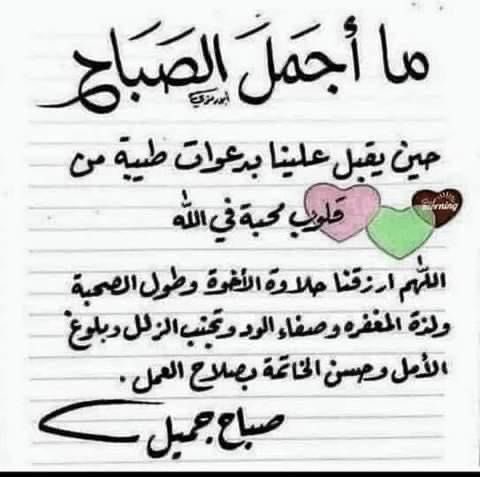 ما أجمَلَ الصَبَاح
أبو رمزي
حين يقبل علينا بدعوات طيبة من
قلوب محبة في الله
morning
اللهم ارزقنا حلاوة الأخوة وطول الصحبة
ولذة المغفره وصفاء الود وتجنب الزلل وبلوغ
الأمل وحسن الخاتمة بصلاح العمل .
صباح جميل